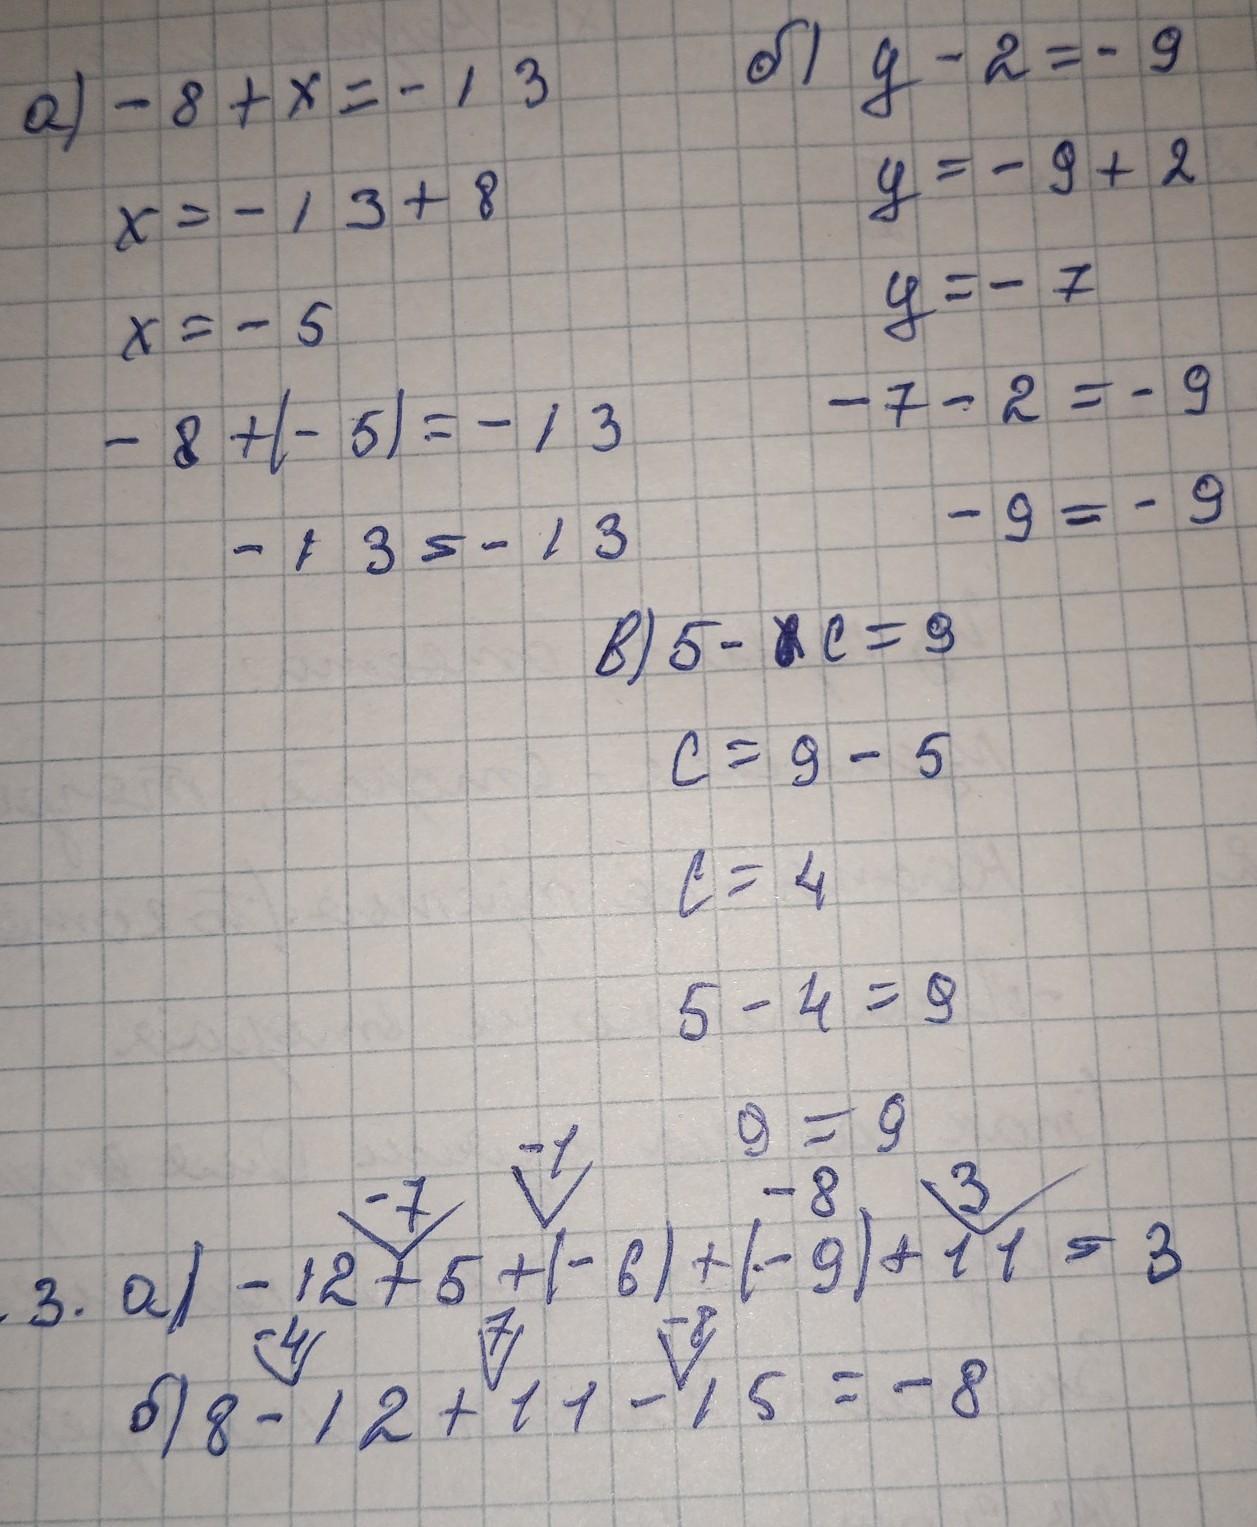 а) -8+x=-13
x=-13+8
x=-5
-8+(-5)=-13
-13=-13
б) y-2=-9
y=-9+2
y=-7
-7-2=-9
-9=-9
в) 5-c=9
c=9-5
c=4
5-4=9
9=9
-7 -1 -8 3
3. а) -12+5+(-6)+(-9)+11=3
-4 7 -8
б) 8-12+11-15=-8